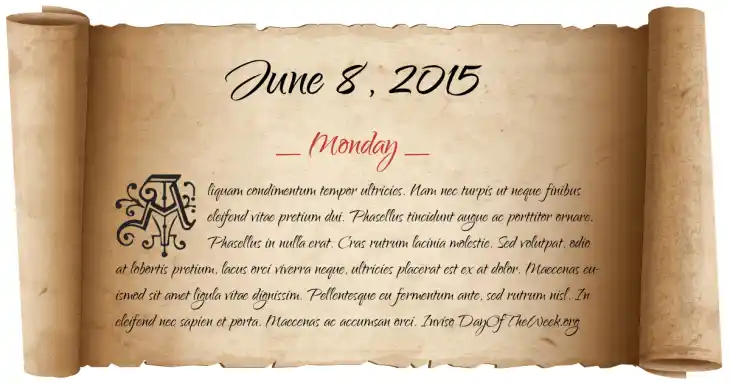 June 8, 2015
— Monday —
Aliquam condimentum tempor ultricies. Nam nec turpis ut neque finibus
eleifend vitae pretium dui. Phasellus tincidunt augue ac porttitor ornare.
Phasellus in nulla erat. Cras rutrum lacinia molestie. Sed volutpat, odio
at lobortis pretium, lacus orci viverra neque, ultricies placerat est ex at dolor. Maecenas eu-
ismod sit amet ligula vitae dignissim. Pellentesque eu fermentum ante, sed rutrum nisl. In
eleifend nec sapien et porta. Maecenas ac accumsan orci. Inviso DayOfTheWeek.org